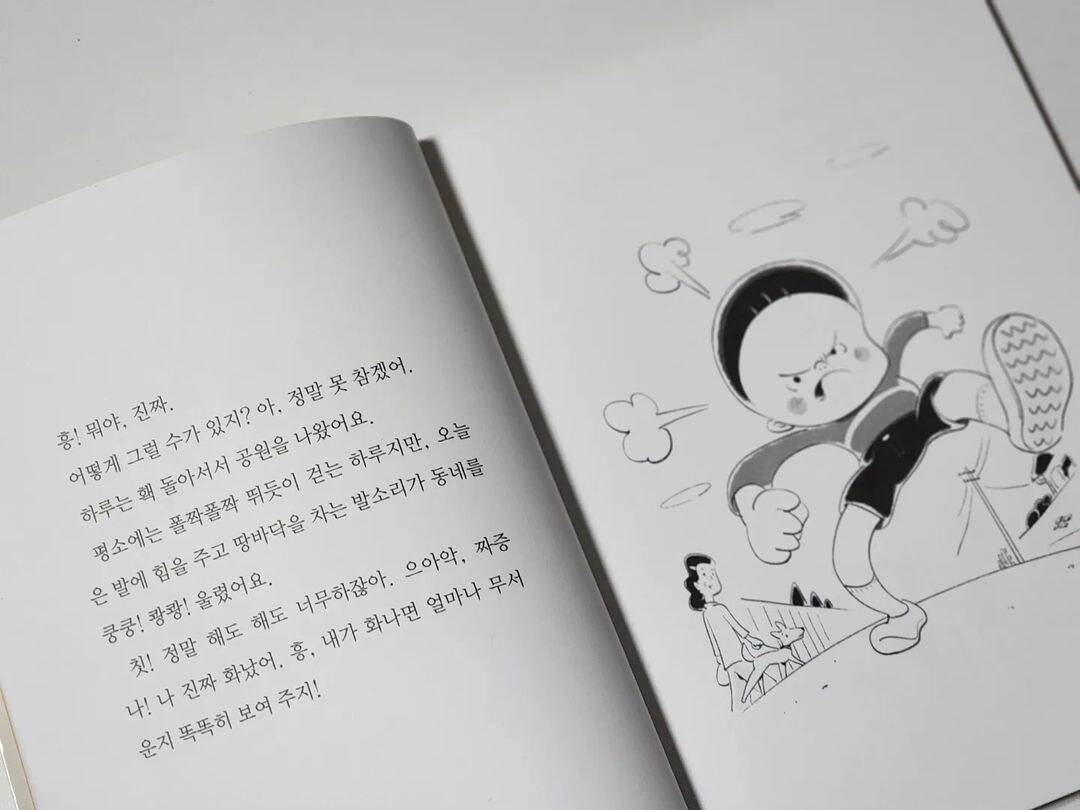 흥! 뭐야, 진짜.
어떻게 그럴 수가 있지? 아, 정말 못 참겠어.
하루는 홱 돌아서서 공원을 나왔어요.
평소에는 폴짝폴짝 뛰듯이 걷는 하루지만, 오늘
은 발에 힘을 주고 땅바닥을 차는 발소리가 동네를
쿵쿵! 쾅쾅! 울렸어요.
칫! 정말 해도 해도 너무하잖아. 으아악, 짜증
나! 나 진짜 화났어. 흥, 내가 화나면 얼마나 무서
운지 똑똑히 보여 주지!